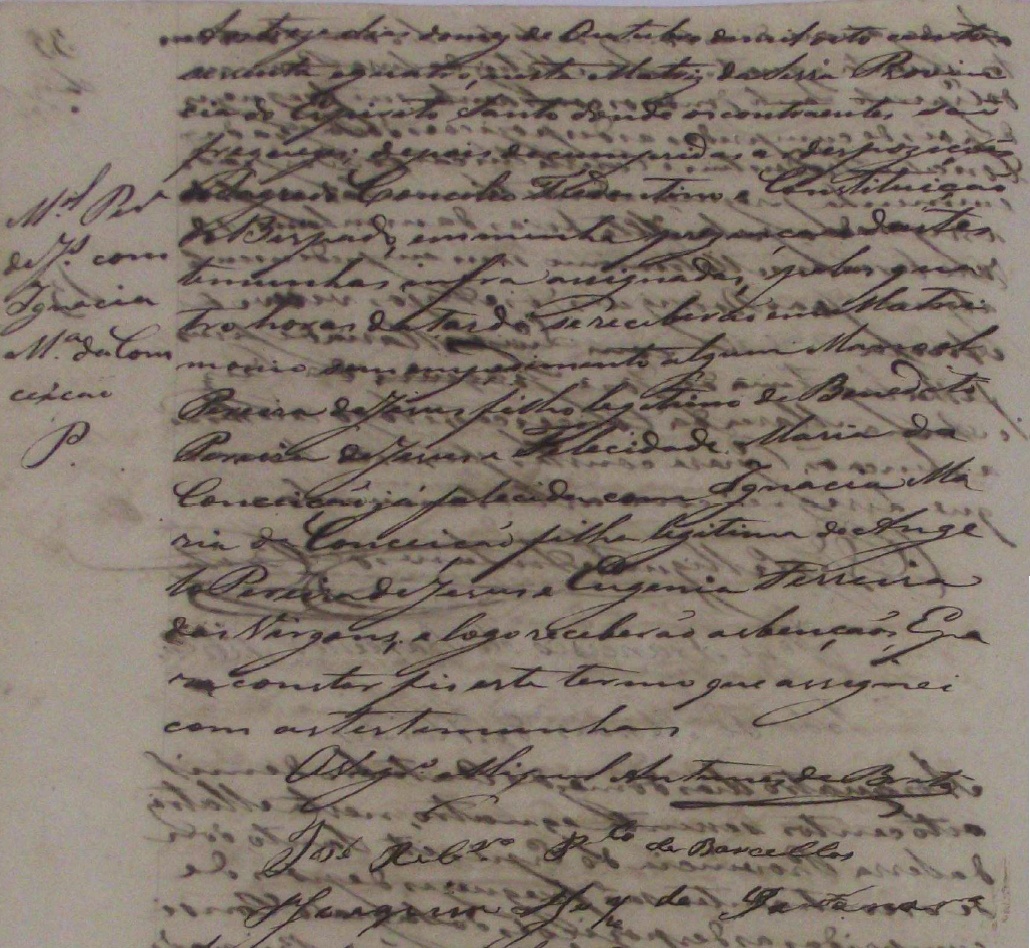 dias do mez de Outubro de mil oito centos
secenta e quatro, nesta Matriz da Serra Provin
cia do Espirito Santo donde os contraentes são
freguezes: depois de cumpridas as despozições
do Sagrado Concilio Tredentino e Constituição
do Bispado, em minha presença e das tes
temunhas infra assignadas, pelas qua
tro horas da tarde se receberão em Matri
monio sem empedimento algum Manoel
Pereira de Jesus filho legitimo de Benedicto
Pereira de Jesus e Felecidade Maria da
Conceição já falecida com Ignacia Ma
ria da Conceição filha legitima de Ange
lo Pereira de Jesus e Eugenia Ferreira
das Virgens, e logo receberão as bençãos, E pa
ra constar fis este termo que assignei
com as testemunhas
O Vigr.º Miguel Antunes de Brito
José Rib.ro P.to de Barcellos
de
M.el Per.
de Js. com
Ignacia
M.ª da Con
ceicao
P.